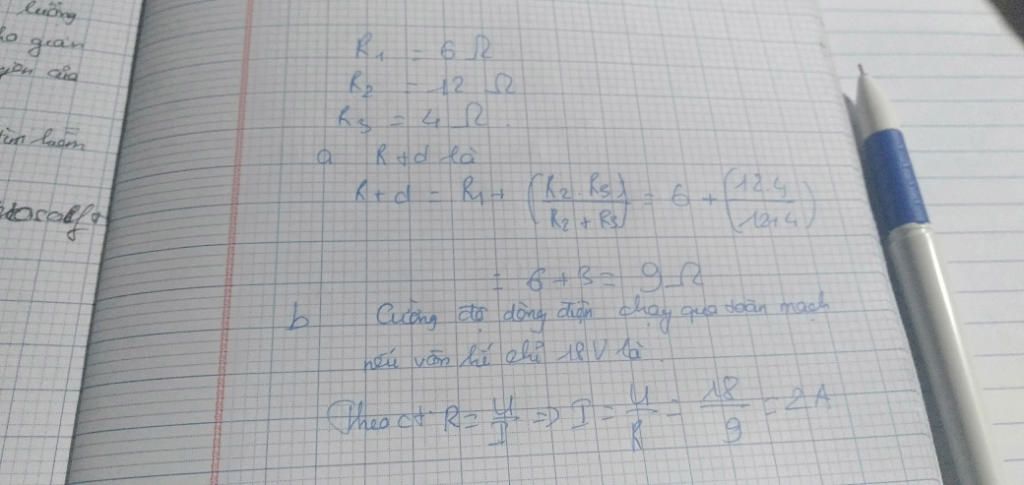 luồng
ho gian
của
R1 = 6 Ω
R2 = 12 Ω
R3 = 4 Ω.
a R+đ là
R+đ = R1+ (R2.R3 / R2+R3) = 6 + (12.4 / 12+4)
= 6+3 = 9 Ω
b Cường độ dòng điện chạy qua toàn mạch
nếu vôn kế chỉ 18V là.
Theo ct R = U/I => I = U/R = 18/9 = 2A